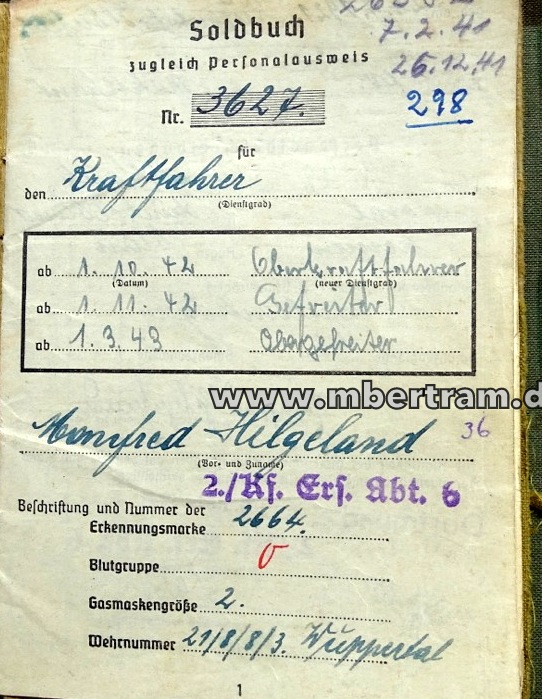 Soldbuch
7. 2. 41
zugleich Personalausweis
26.12.41
Nr. 3627.
298
für
den Kraftfahrer
(Dienstgrad)
ab 1. 10. 42 Oberkraftfahrer
(Datum) (neuer Dienstgrad)
ab 1. 11. 42 Gefreiter
ab 1. 3. 43 Obergefreiter
www.mbertram.d
Manfred Hilgeland
36
(Vor- und Zuname)
2./Kf. Ers. Abt. 6
Beschriftung und Nummer der
Erkennungsmarke 2664.
Blutgruppe O
Gasmaskengröße 2.
Wehrnummer 21/8/8/3. Wuppertal
1